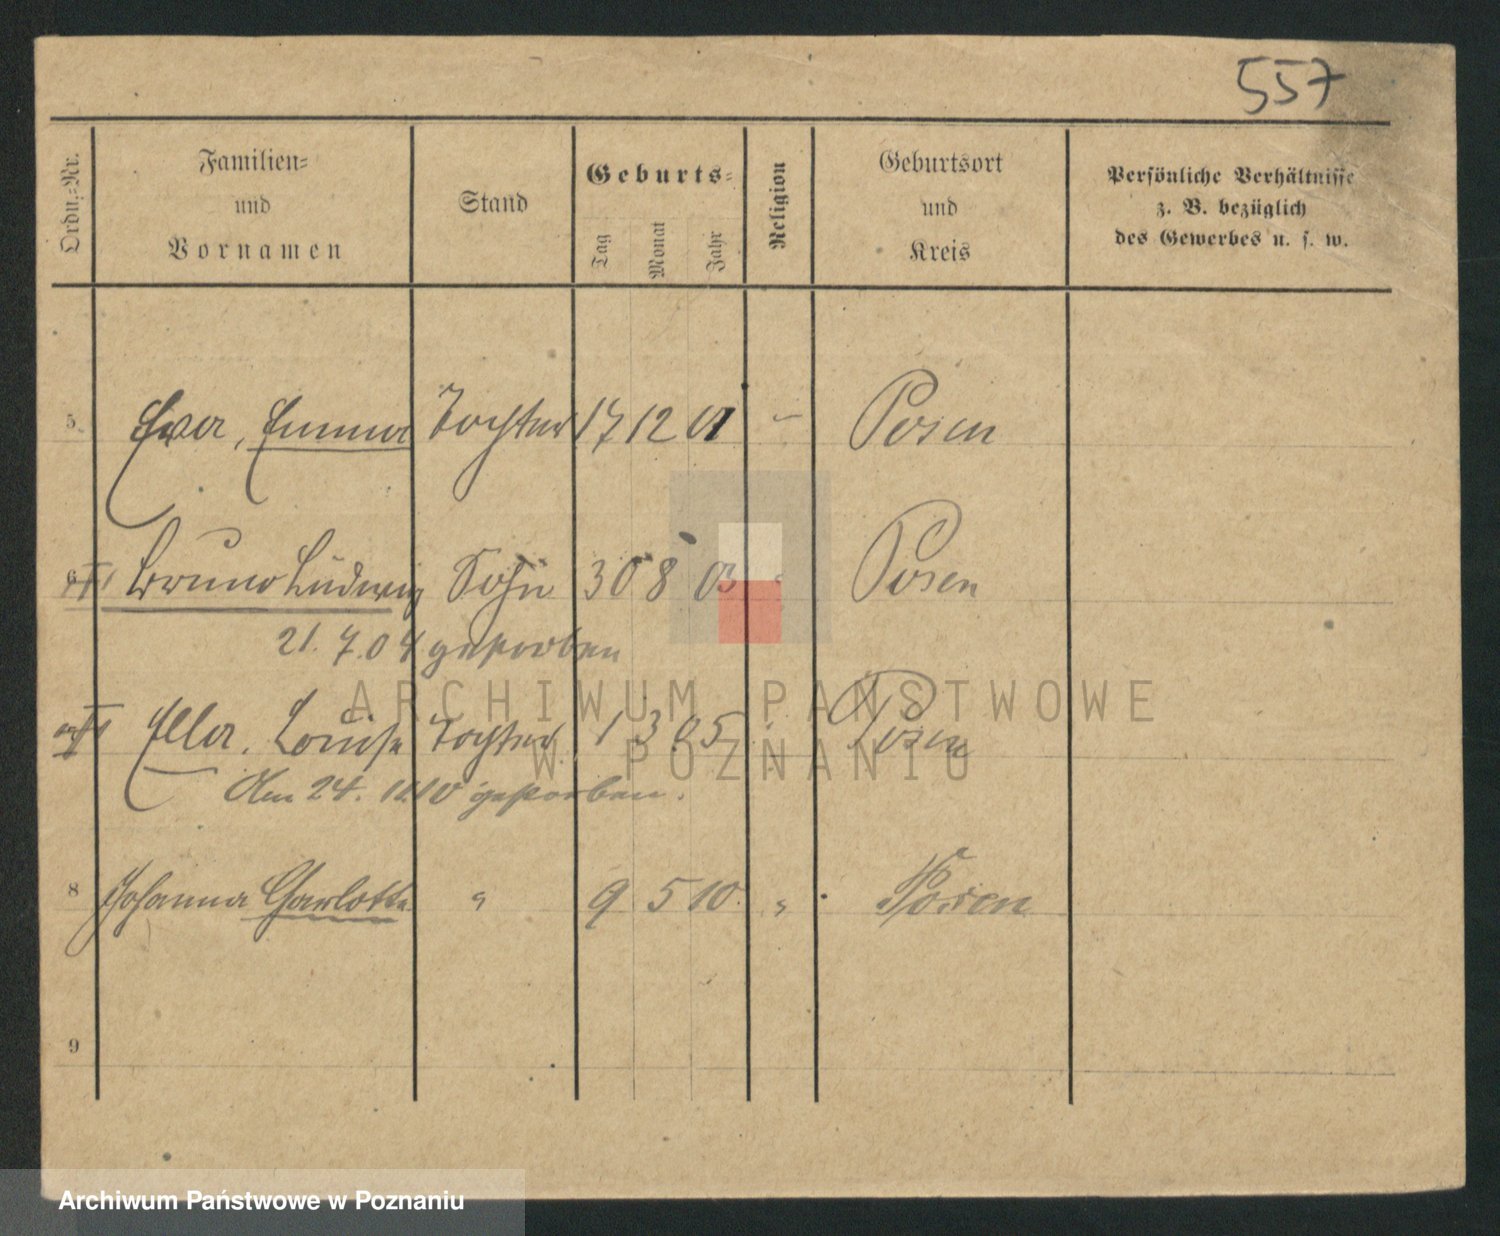 557
Ordn.-Nr. Familien- und Vornamen Stand Geburts- Tag Monat Jahr Religion Geburtsort und Kreis Persönliche Verhältnisse z. B. bezüglich des Gewerbes u. s. w.
5 Eva, Emma Tochter 17 12 01 " Posen
6 Bruno Ludwig Sohn 30 8 03 " Posen
21. 7. 04 gestorben
Ella, Louise Tochter 1 3 05 " Posen
Am 24. gestorben.
8 Johanna Charlotte " 9 5 10. " Posen
9
ARCHIWUM PAŃSTWOWE
W POZNANIU
Archiwum Państwowe w Poznaniu